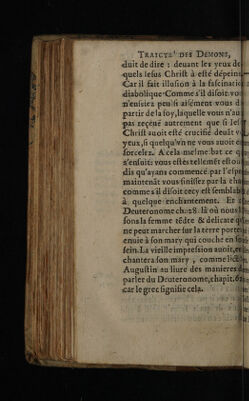 TRAICTE' DES DEMONS,
duit de dire : deuant les yeux de
quels Iesus Christ à esté dépein
Car il fait illusion à la fascinatio
diabolique: Comme s'il disoit vo
n'eussiez peu si aisément vous d
partir de la foy, laquelle vous n'au
pas reçeuë autrement que si Ies
Christ auoit esté crucifié deuāt v
yeux, si quelqu'vn ne vous auoit é
sorcelez. A cela mesme bat ce q
s'ensuit: vous estes tellemēt esto
dis qu'ayans commencé par l'espr
maintenāt vous finissez par la cha
comme s'il disoit cecy est semblab
à quelque enchantement. Et
Deuteronome ch. 28. là où nous li
sons la femme tēdre & delicate q
ne peut marcher sur la terre porte
enuie à son mary qui couche en so
sein. La vieille impression auoit, e
chantera son mary, comme lict
Augustin au liure des manieres d
parler du Deuteronome, chapit.
car le grec signifie cela.